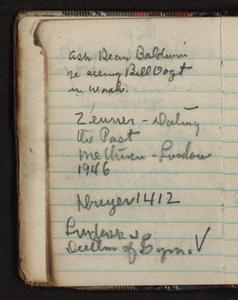 Ask Dean Baldwin
re seeing Bill Vogt
in Wash.
Zeuner - Dating
the Past
Methuen - London
1946
Dreyer 1412
of